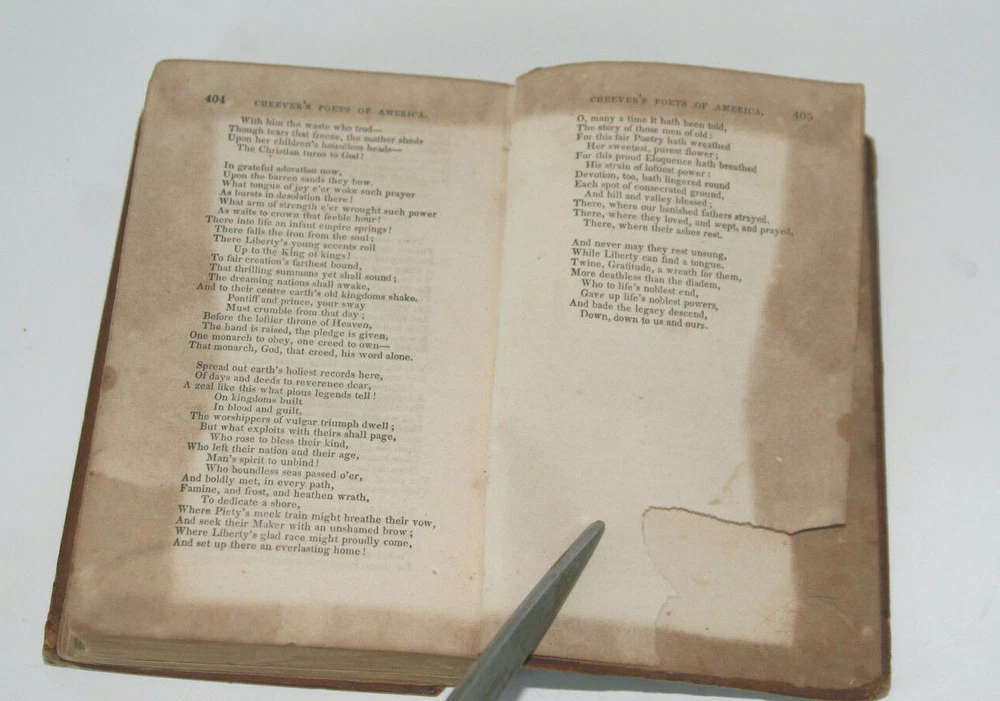 404
CHEEVER'S POETS OF AMERICA.
With him the waste who trod—
Though tears that freeze, the mother sheds
Upon her children's houseless heads—
The Christian turns to God!
In grateful adoration now,
Upon the barren sands they bow.
What tongue of joy e'er woke such prayer
As bursts in desolation there!
What arm of strength e'er wrought such power
As waits to crown that feeble hour!
There into life an infant empire springs!
There falls the iron from the soul;
There Liberty's young accents roll
Up to the King of kings!
To fair creation's farthest bound,
That thrilling summons yet shall sound;
The dreaming nations shall awake,
And to their centre earth's old kingdoms shake.
Pontiff and prince, your sway
Must crumble from that day;
Before the loftier throne of Heaven,
The hand is raised, the pledge is given,
One monarch to obey, one creed to own—
That monarch, God, that creed, his word alone.
Spread out earth's holiest records here,
Of days and deeds to reverence dear,
A zeal like this what pious legends tell!
On kingdoms built
In blood and guilt,
The worshippers of vulgar triumph dwell;
But what exploits with theirs shall page,
Who rose to bless their kind,
Who left their nation and their age,
Man's spirit to unbind!
Who boundless seas passed o'er,
And boldly met, in every path,
Famine, and frost, and heathen wrath,
To dedicate a shore,
Where Piety's meek train might breathe their vow,
And seek their Maker with an unshamed brow;
Where Liberty's glad race might proudly come,
And set up there an everlasting home!
CHEEVER'S POETS OF AMERICA.
405
O, many a time it hath been told,
The story of those men of old:
For this fair Poetry hath wreathed
Her sweetest, purest flower;
For this proud Eloquence hath breathed
His strain of loftiest power:
Devotion, too, hath lingered round
Each spot of consecrated ground,
And hill and valley blessed;
There, where our banished fathers strayed,
There, where they loved, and wept, and prayed,
There, where their ashes rest.
And never may they rest unsung,
While Liberty can find a tongue.
Twine, Gratitude, a wreath for them,
More deathless than the diadem,
Who to life's noblest end,
Gave up life's noblest powers,
And bade the legacy descend,
Down, down to us and ours.